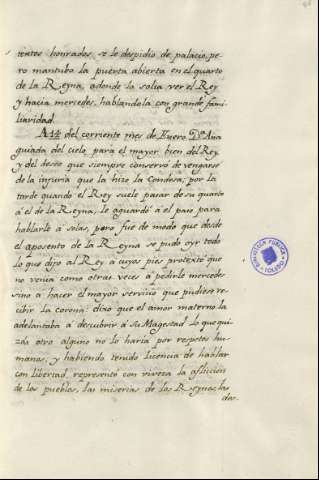 ientos honrados, se le despidio de palacio, pe-
ro mantubo la puerta abierta en el quarto
de la Reyna, adonde la solia ver el Rey
y hacia mercedes, hablandola con grande fami-
liaridad.
A 14 del corriente mes de Enero D.ª Ana
guiada del cielo para el mayor bien del Rey
y del deseo que siempre conservó de vengarse
de la injuria que la hizo la Condesa, por la
tarde quando el Rey suele pasar de su quarto
á el de la Reyna, le aguardó á el paso para
hablarle á solas, pero fue de modo que desde
el aposento de la Reyna se pudo oyr todo
lo que dijo al Rey á cuyos pies protextó que
no venia como otras veces á pedirle mercedes
sino a hacer el mayor servicio que pudiese re-
cibir la corona: dixo que el amor materno la
adelantaba á descubrir á su Magestad lo que qui-
zás otro alguno no lo haria por respetos hu-
manos, y habiendo tenido licencia de hablar
con libertad, representó con viveza la afliccion
de los pueblos, las miserias de los Reynos, las
das.
BIBLIOTECA PUBLICA
TOLEDO